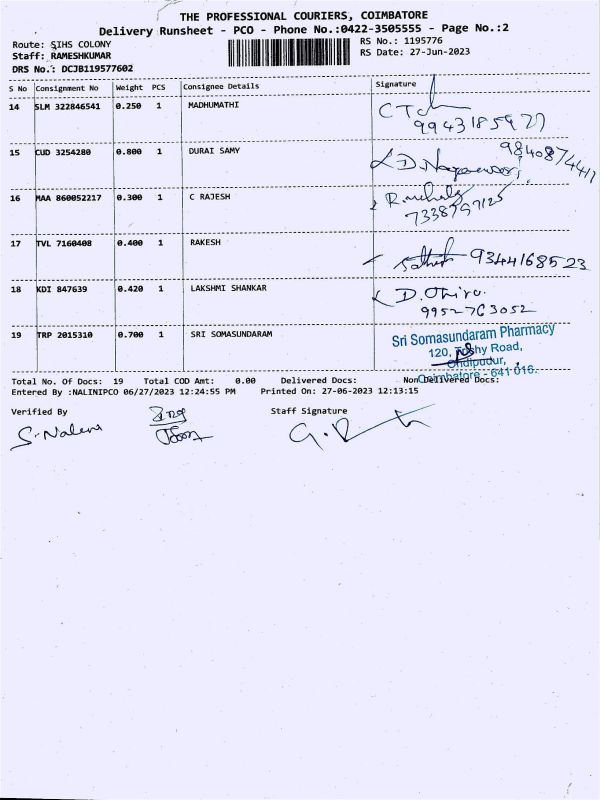 THE PROFESSIONAL COURIERS, COIMBATORE
Delivery Runsheet - PCO - Phone No.:0422-3505555 - Page No.:2
Route: SIHS COLONY
RS No.: 1195776
Staff: RAMESHKUMAR
RS Date: 27-Jun-2023
DRS No.: DCJB119577602
S No Consignment No Weight PCS Consignee Details Signature
14 SLM 322846541 0.250 1 MADHUMATHI
9943185927
15 CUD 3254280 0.800 1 DURAI SAMY
9840874417
16 MAA 860052217 0.300 1 C RAJESH
7338797125
17 TVL 7160408 0.400 1 RAKESH
9344168523
18 KDI 847639 0.420 1 LAKSHMI SHANKAR
9952763052
19 TRP 2015310 0.700 1 SRI SOMASUNDARAM
Sri Somasundaram Pharmacy
120, Road,
Ondipudur,
Coimbatore - 641 016.
Total No. Of Docs: 19 Total COD Amt: 0.00 Delivered Docs: Non Delivered Docs:
Entered By :NALINIPCO 06/27/2023 12:24:55 PM Printed On: 27-06-2023 12:13:15
Verified By Staff Signature
S. Nalini